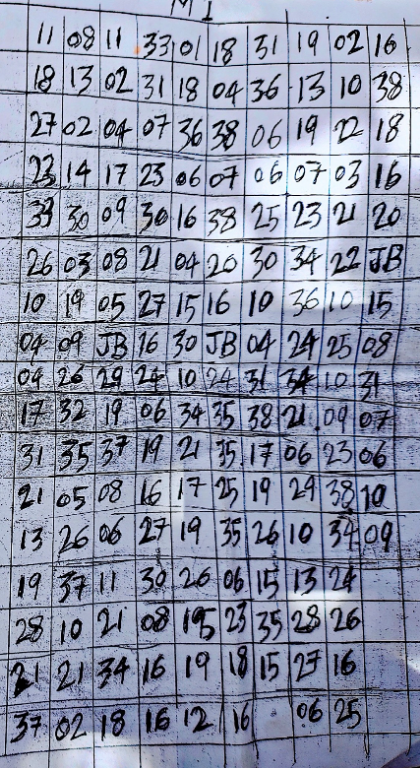 M I
11 08 11 33 01 18 31 19 02 16
18 13 02 31 18 04 36 13 10 38
27 02 04 07 36 38 06 19 22 18
23 14 17 23 06 07 06 07 03 16
30 09 30 16 38 25 23 21 20
26 03 08 21 04 20 30 34 22 JB
10 19 05 27 15 16 10 36 10 15
04 09 JB 16 30 JB 04 24 25 08
04 26 29 24 10 24 31 34 10 31
17 32 19 06 34 35 38 21 09 07
31 35 37 19 21 35 17 06 23 06
21 05 08 16 17 25 19 29 38 10
13 26 06 27 19 35 26 10 34 09
19 37 11 30 26 06 15 13 24
28 10 21 08 23 35 28 26
21 21 34 16 19 18 15 27 16
37 02 18 16 12 16 06 25